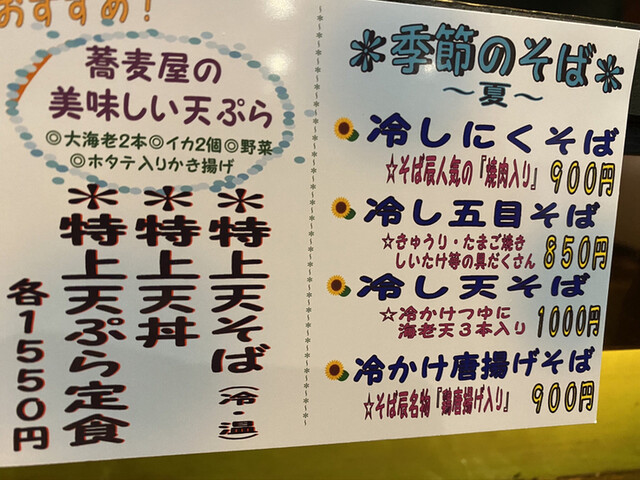 おすすめ!
蕎麦屋の
美味しい天ぷら
◎大海老2本◎イカ2個◎野菜
◎ホタテ入りかき揚げ
＊特上天そば(冷・温)
＊特上天丼
＊特上天ぷら定食
各1550円
＊季節のそば＊
～夏～
冷しにくそば
☆そば辰人気の『焼肉入り』 900円
冷し五目そば
☆きゅうり・たまご焼き
しいたけ等の具だくさん 850円
冷し天そば
☆冷かけつゆに
海老天3本入り 1000円
冷かけ唐揚げそば
☆そば辰名物『鶏唐揚げ入り』 900円